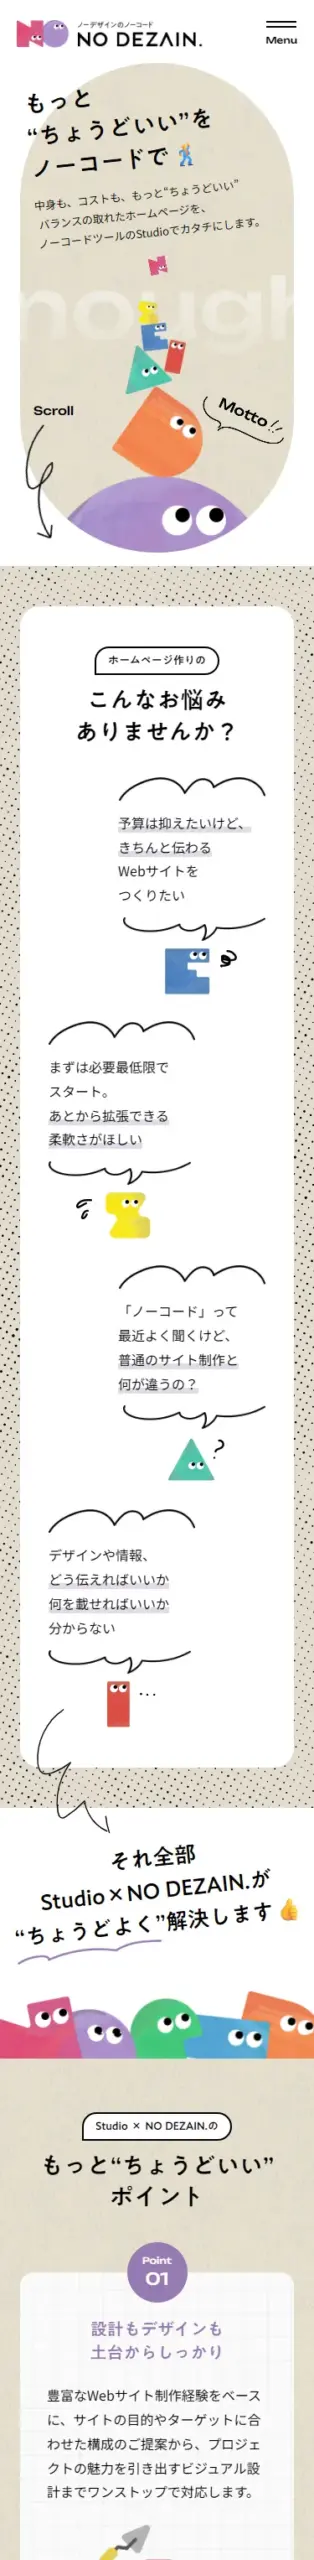 NO
ノーデザインのノーコード
NO DEZAIN.
Menu
もっと
“ちょうどいい”を
ノーコードで
中身も、コストも、もっと“ちょうどいい”
バランスの取れたホームページを、
ノーコードツールのStudioでカタチにします。
N
nough
Scroll
Motto!!
ホームページ作りの
こんなお悩み
ありませんか？
予算は抑えたいけど、
きちんと伝わる
Webサイトを
つくりたい
まずは必要最低限で
スタート。
あとから拡張できる
柔軟さがほしい
「ノーコード」って
最近よく聞くけど、
普通のサイト制作と
何が違うの？
?
デザインや情報、
どう伝えればいいか
何を載せればいいか
分からない
...
それ全部
Studio×NO DEZAIN.が
“ちょうどよく”解決します
Studio × NO DEZAIN.の
もっと“ちょうどいい”
ポイント
Point
01
設計もデザインも
土台からしっかり
豊富なWebサイト制作経験をベース
に、サイトの目的やターゲットに合
わせた構成のご提案から、プロジェ
クトの魅力を引き出すビジュアル設
計までワンストップで対応します。